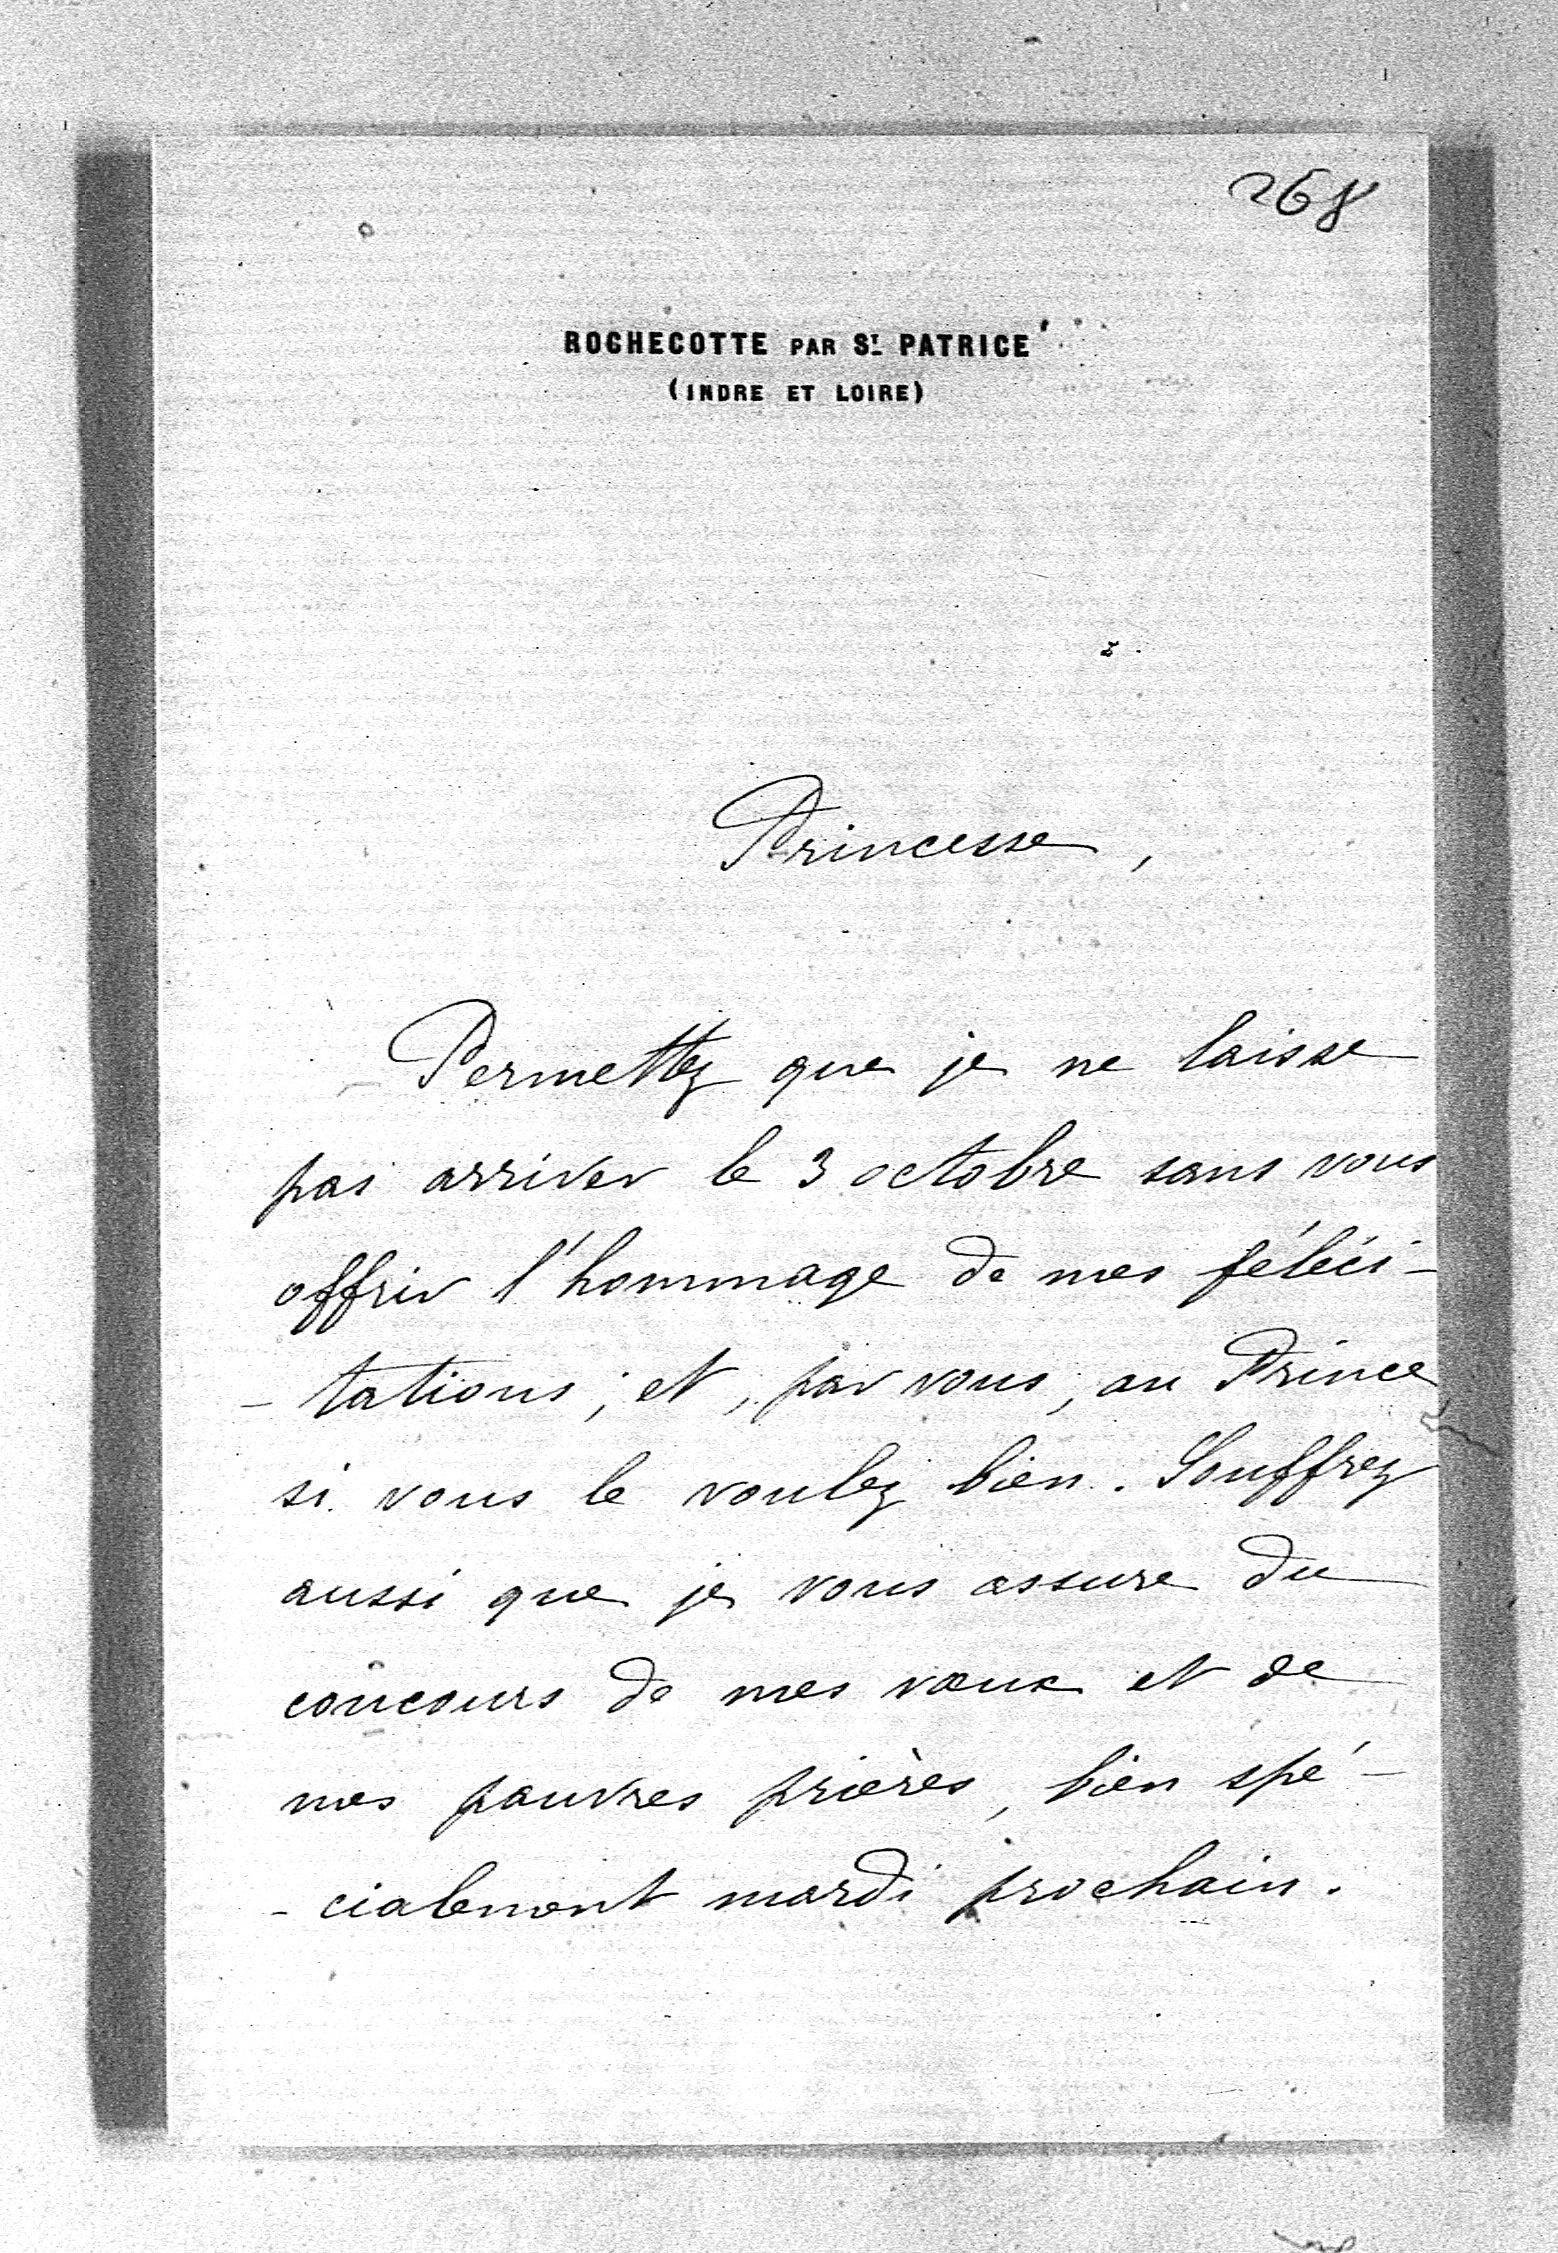 268
ROCHECOTTE PAR ST PATRICE
(INDRE ET LOIRE)
Princesse,
Permettez que je ne laisse
pas arriver le 3 octobre sans vous
offrir l'hommage de mes félici-
-tations, et, par vous, au Prince
si vous le voulez bien. Souffrez
aussi que je vous assure du
concours de mes vœux et de
mes pauvres prières, bien spé-
-cialement mardi prochain.